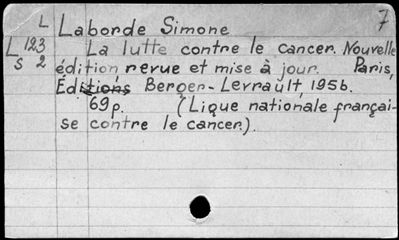 L Laborde Simone 7
L 123 La lutte contre le cancer. Nouvelle
S 2 édition revue et mise à jour. Paris,
Éditions Berger-Levrault, 1956.
69p. (Ligue nationale françai-
se contre le cancer).